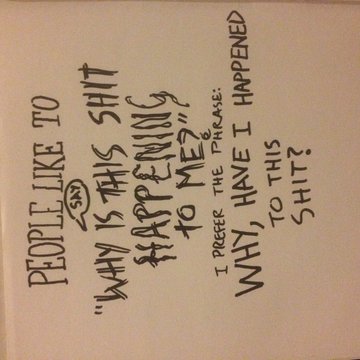 PEOPLE LIKE TO
SAY
"WHY IS THIS SHIT
HAPPENING
TO ME?"
I PREFER THE PHRASE:
WHY, HAVE I HAPPENED
TO THIS
SHIT?